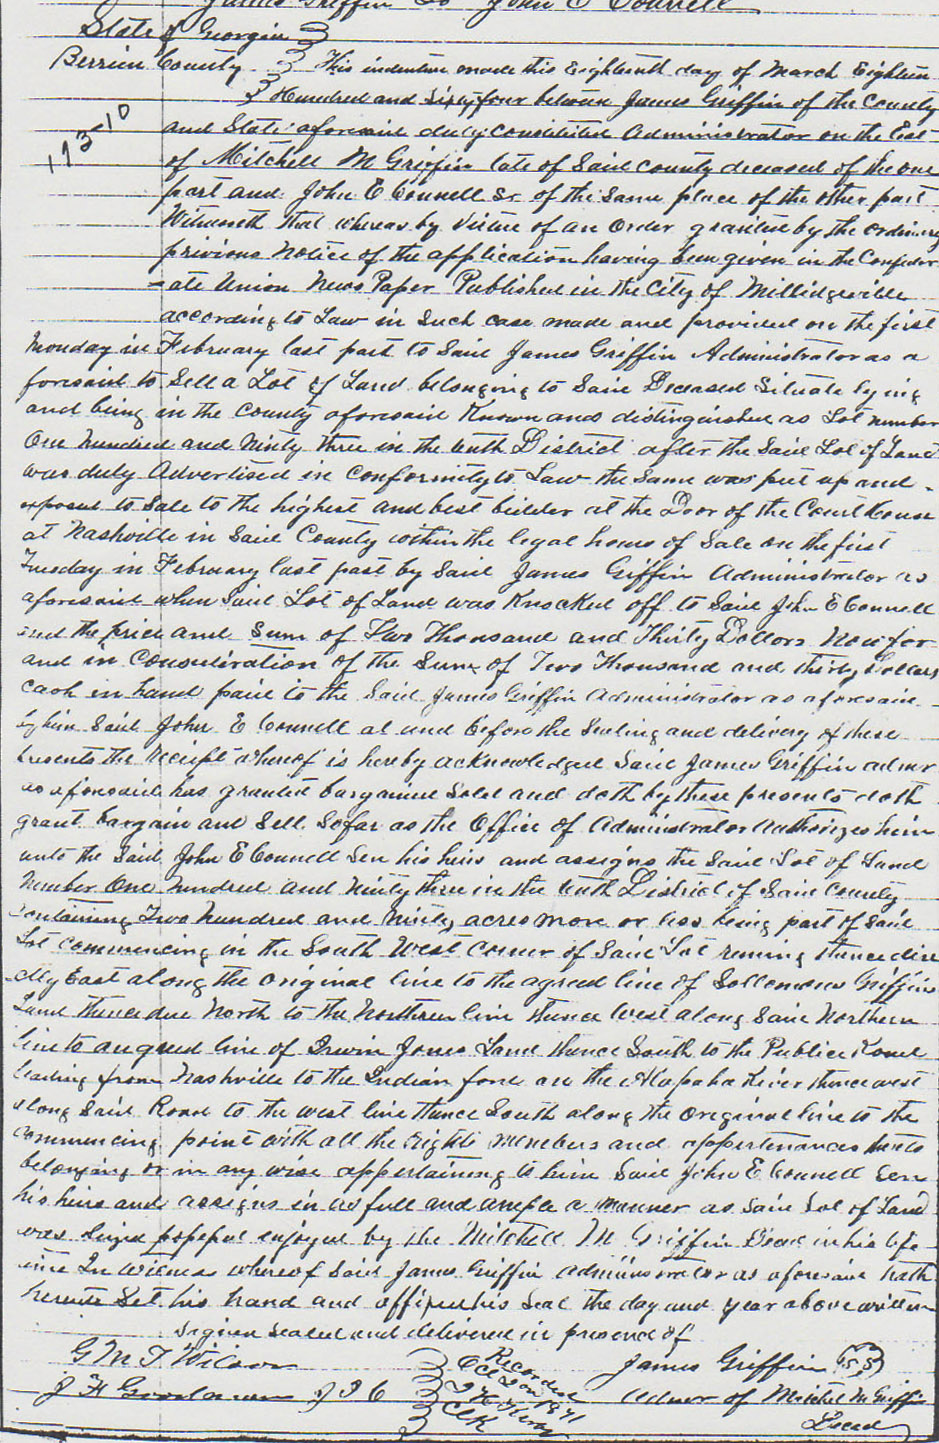 James Griffin to John E Connell
State of Georgia
Berrien County This indenture made this Eighteenth day of March Eighteen
193-10
Hundred and Sixty four between James Griffin of the County
and State aforesaid duly constituted Administrator on the Est
of Mitchell M Griffin late of Said County deceased of the one
part and John E Connell Sr of the Same place of the other part
Witnesseth that whereas by Virtue of an Order granted by the Ordinary
privious Notice of the application having been given in the Confeder
-ate Union News Paper Published in the City of Millidgeville
according to Law in Such case made and provided on the first
Monday in February last past to Said James Griffin Administrator as a
foresaid to Sell a Lot of Land belonging to Said Deceased Situate lying
and being in the County aforesaid Known and distinguished as Lot number
One hundred and Ninty three in the tenth District after the Said Lot of Land
was duly Advertised in conformity to Law the Same was put up and
exposed to Sale to the highest and best bidder at the Door of the Court house
at Nashville in Said County within the legal hours of Sale on the first
Tuesday in February last past by Said James Griffin Administrator as
aforesaid when Said Lot of Land was Knocked off to Said John E Connell
and the price and Sum of Two Thousand and Thirty Dollars Now for
and in Consideration of the Sum of Two Thousand and thirty Dollars
Cash in hand paid to the Said James Griffin administrator as aforesaid
by him Said John E Connell at and before the Sealing and delivery of these
presents the receipt whereof is hereby acknowledged Said James Griffin admr
as aforesaid has granted bargained Sold and doth by these presents doth
grant bargain and Sell Sofar as the Office of Administrator Authorizes him
unto the Said John E Connell Sen his heirs and assigns the Said Lot of Land
Number One hundred and Ninty three in the tenth District of Said County
Containing Two hundred and Ninty acres more or less being part of Said
Lot commencing in the South West corner of Said Lot runing thence dire
ctly East along the original line to the agreed line of Sollomons Griffins
Land thence due North to the Northern line thence West along Said Northern
line to an agreed line of Irwin Jones Land thence South to the Publice Road
leading from Nashville to the Indian ford on the Alapaha River thence west
along Said Road to the west line thence South along the original line to the
commencing point with all the rights members and appertenances thereto
belonging or in any wise appertaining to him Said John E Connell Sen
his heirs and assigns in as full and ample a manner as Said Lot of Land
was Seized possessed enjoyed by the Mitchell M Griffin Decd in his life
time In Witness whereof Said James Griffin administrator as aforesaid hath
hereunto Set his hand and affixed his Seal the day and year above written
Signed Sealed and delivered in presence of
G M T Wilson
J H Goodman J I C
Recorded
1871
Clk
James Griffin
Admor of Mitchel M Griffin
Decd